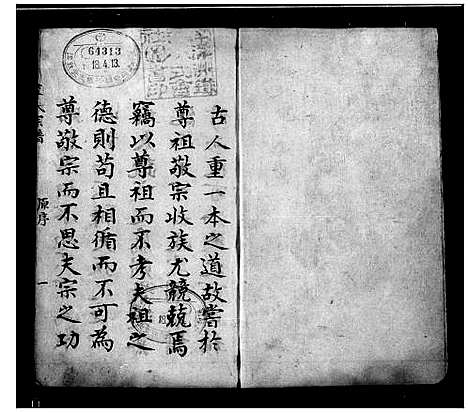 古人重一本之道故嘗於
尊祖敬宗收族尤競競焉
竊以尊祖而不考夫祖之
德則苟且相循而不可為
尊敬宗而不思夫宗之功
氏宗譜
原序
一
64313
18.4.13.